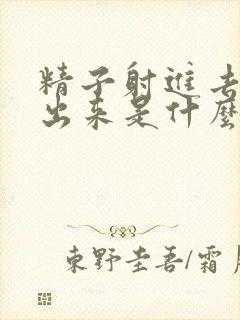 精子射進去
出來是什麼
東野圭吾/霜月